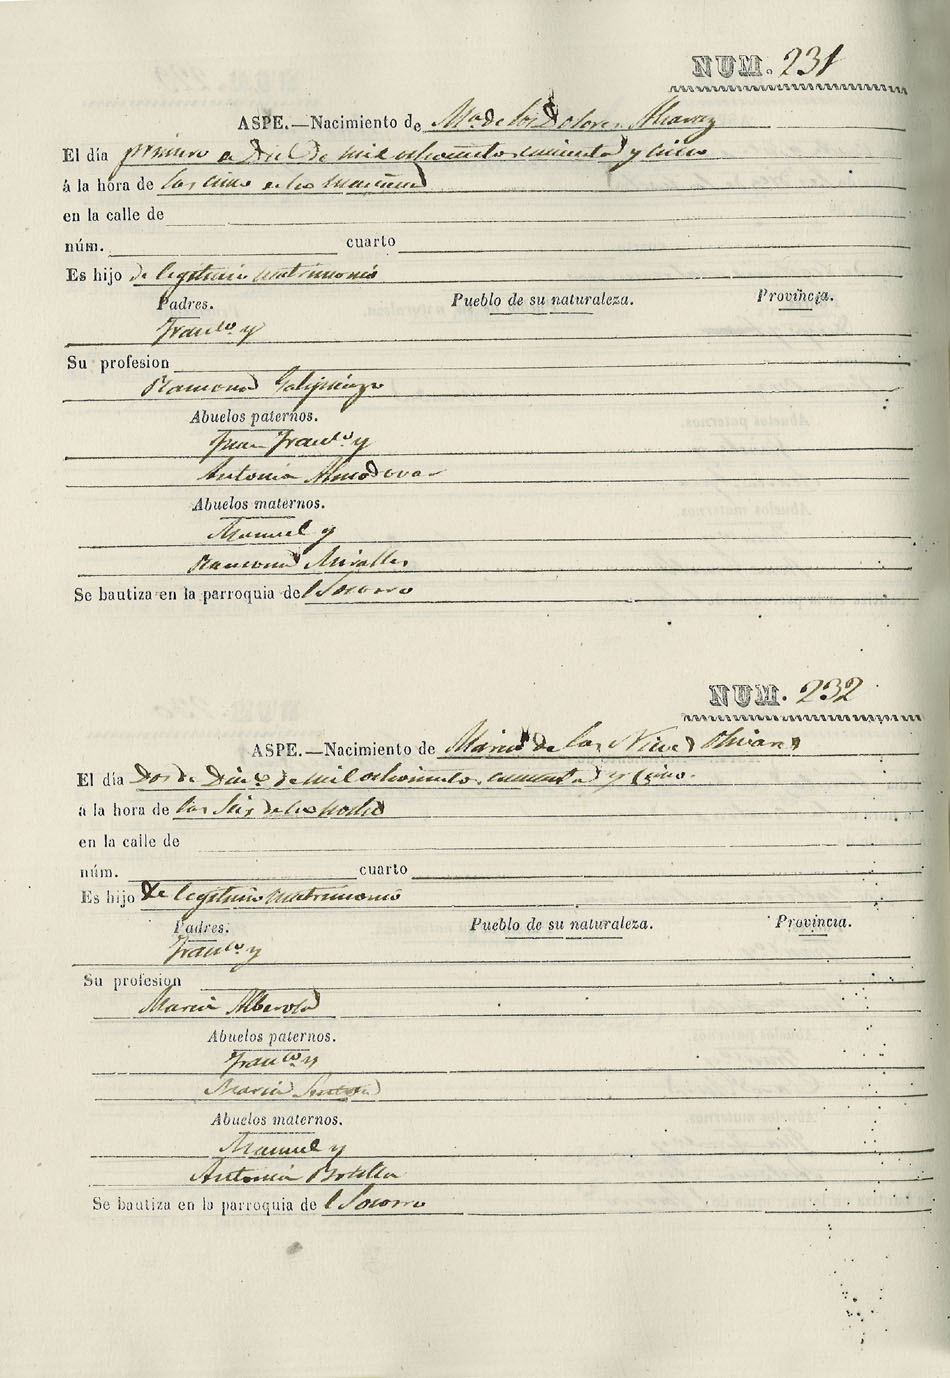 NUM. 231
ASPE.—Nacimiento de Mª de los Dolores Alvarez
El día primero de Dice de mil ochocientos cincuenta y cinco
á la hora de las cinco de la mañana
en la calle de
núm. cuarto
Es hijo de legitimo matrimonio
Padres. Pueblo de su naturaleza. Provincia.
Franco y
Su profesion
Ramona Galipienzo
Abuelos paternos.
Juan Franco y
Antonia Almodovar
Abuelos maternos.
Manuel y
Ramona Miralles
Se bautiza en la parroquia del Socorro
NUM. 232
ASPE.—Nacimiento de Maria de las Nieves
El día Dos de Dice de mil ochocientos cincuenta y cinco.
á la hora de las seis de la noche
en la calle de
núm. cuarto
Es hijo de legitimo matrimonio
Padres. Pueblo de su naturaleza. Provincia.
Franco y
Su profesion
Maria Alberola
Abuelos paternos.
Franco y
Maria
Abuelos maternos.
Manuel y
Antonia Botella
Se bautiza en la parroquia del Socorro